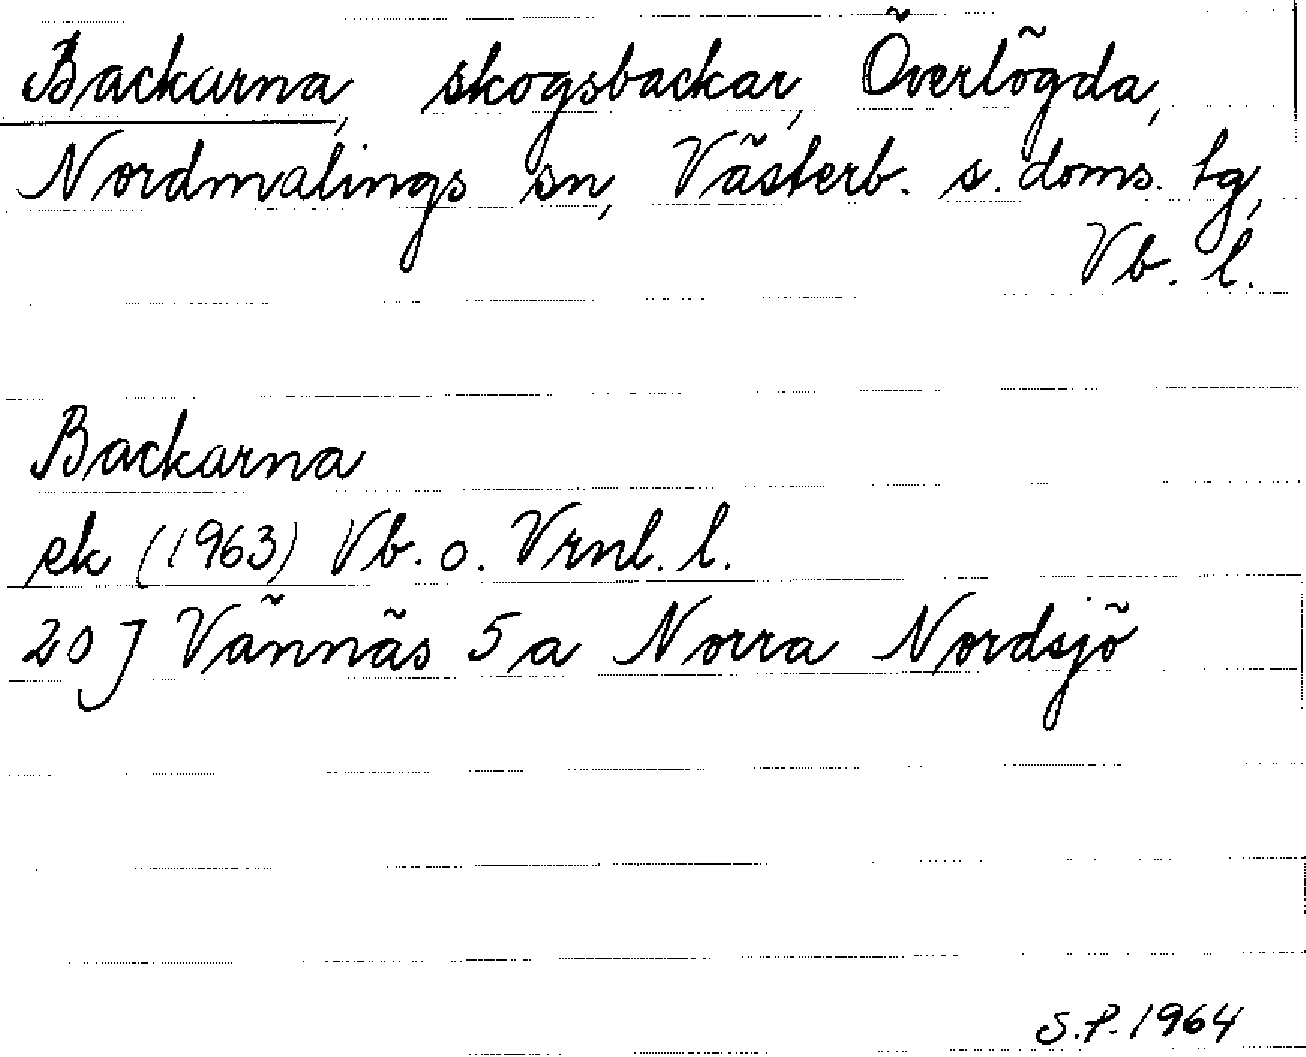 Backarna, skogsbackar, Överlögda,
Nordmalings sn, Västerb. s. doms. tg,
Vb. l.
Backarna
ek (1963) Vb. o. Vrnl. l.
20 J Vännäs 5 a Norra Nordsjö
S.P. 1964